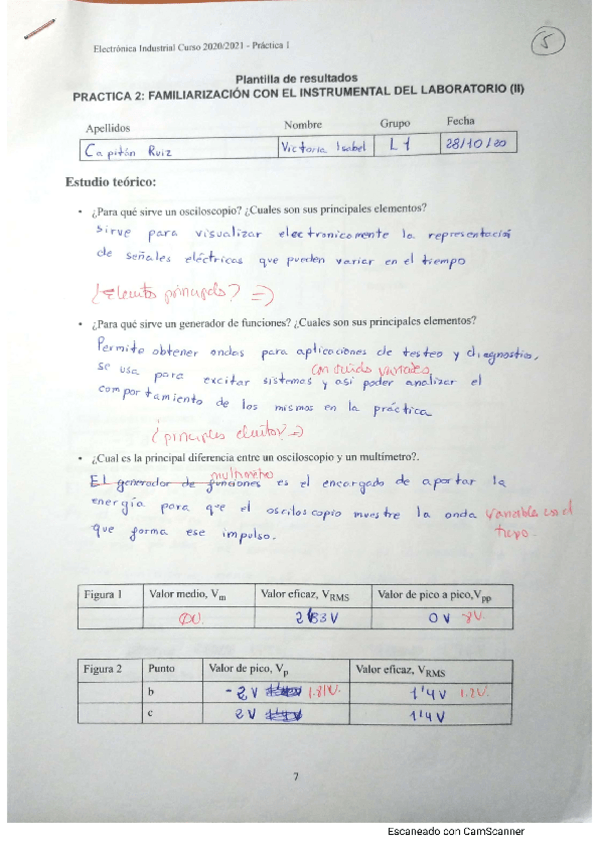 Electrónica Industrial Curso 2020/2021 - Práctica 1
5
Plantilla de resultados
PRACTICA 2: FAMILIARIZACIÓN CON EL INSTRUMENTAL DEL LABORATORIO (II)
Apellidos Nombre Grupo Fecha
Capitán Ruiz Victoria Isabel L1 28/10/20
Estudio teórico:
• ¿Para qué sirve un osciloscopio? ¿Cuales son sus principales elementos?
Sirve para visualizar electronicamente la representación
de señales eléctricas que pueden variar en el tiempo
¿Elementos principales? =>
• ¿Para qué sirve un generador de funciones? ¿Cuales son sus principales elementos?
Permite obtener ondas para aplicaciones de testeo y diagnostico,
se usa para excitar sistemas y así poder analizar el
comportamiento de los mismos en la práctica
¿principales =>
• ¿Cual es la principal diferencia entre un osciloscopio y un multímetro?.
multímetro
El generador de funciones es el encargado de aportar la
energía para que el osciloscopio muestre la onda variable en el
que forma ese impulso. tiempo.
Figura 1 Valor medio, Vm Valor eficaz, VRMS Valor de pico a pico,Vpp
0V. 2'83 V 0 V 8V.
Figura 2 Punto Valor de pico, Vp Valor eficaz, VRMS
b -2 V 1.81V. 1'4 V 1.2V.
c 2 V 1'4 V
7
Escaneado con CamScanner